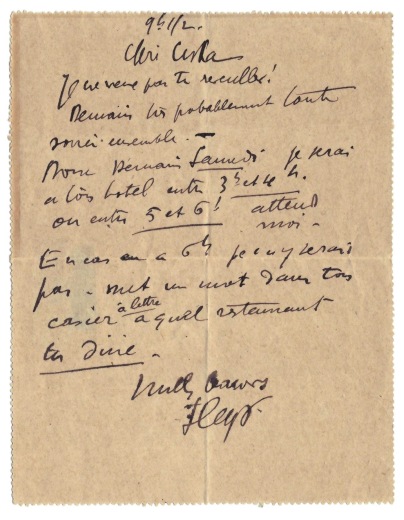 9h 1/2.
Chéri
Je ne veux pas te reveiller!
Demain très probablement toute
soirée ensemble. –
Donc Demain Samedi je serai
a ton hotel entre 3h et 4h.
ou entre 5 et 6h attend
moi –
En cas ou a 6h je n'y serais
pas – met un mot dans ton
casier à lettre a quel restaurant
tu dine.